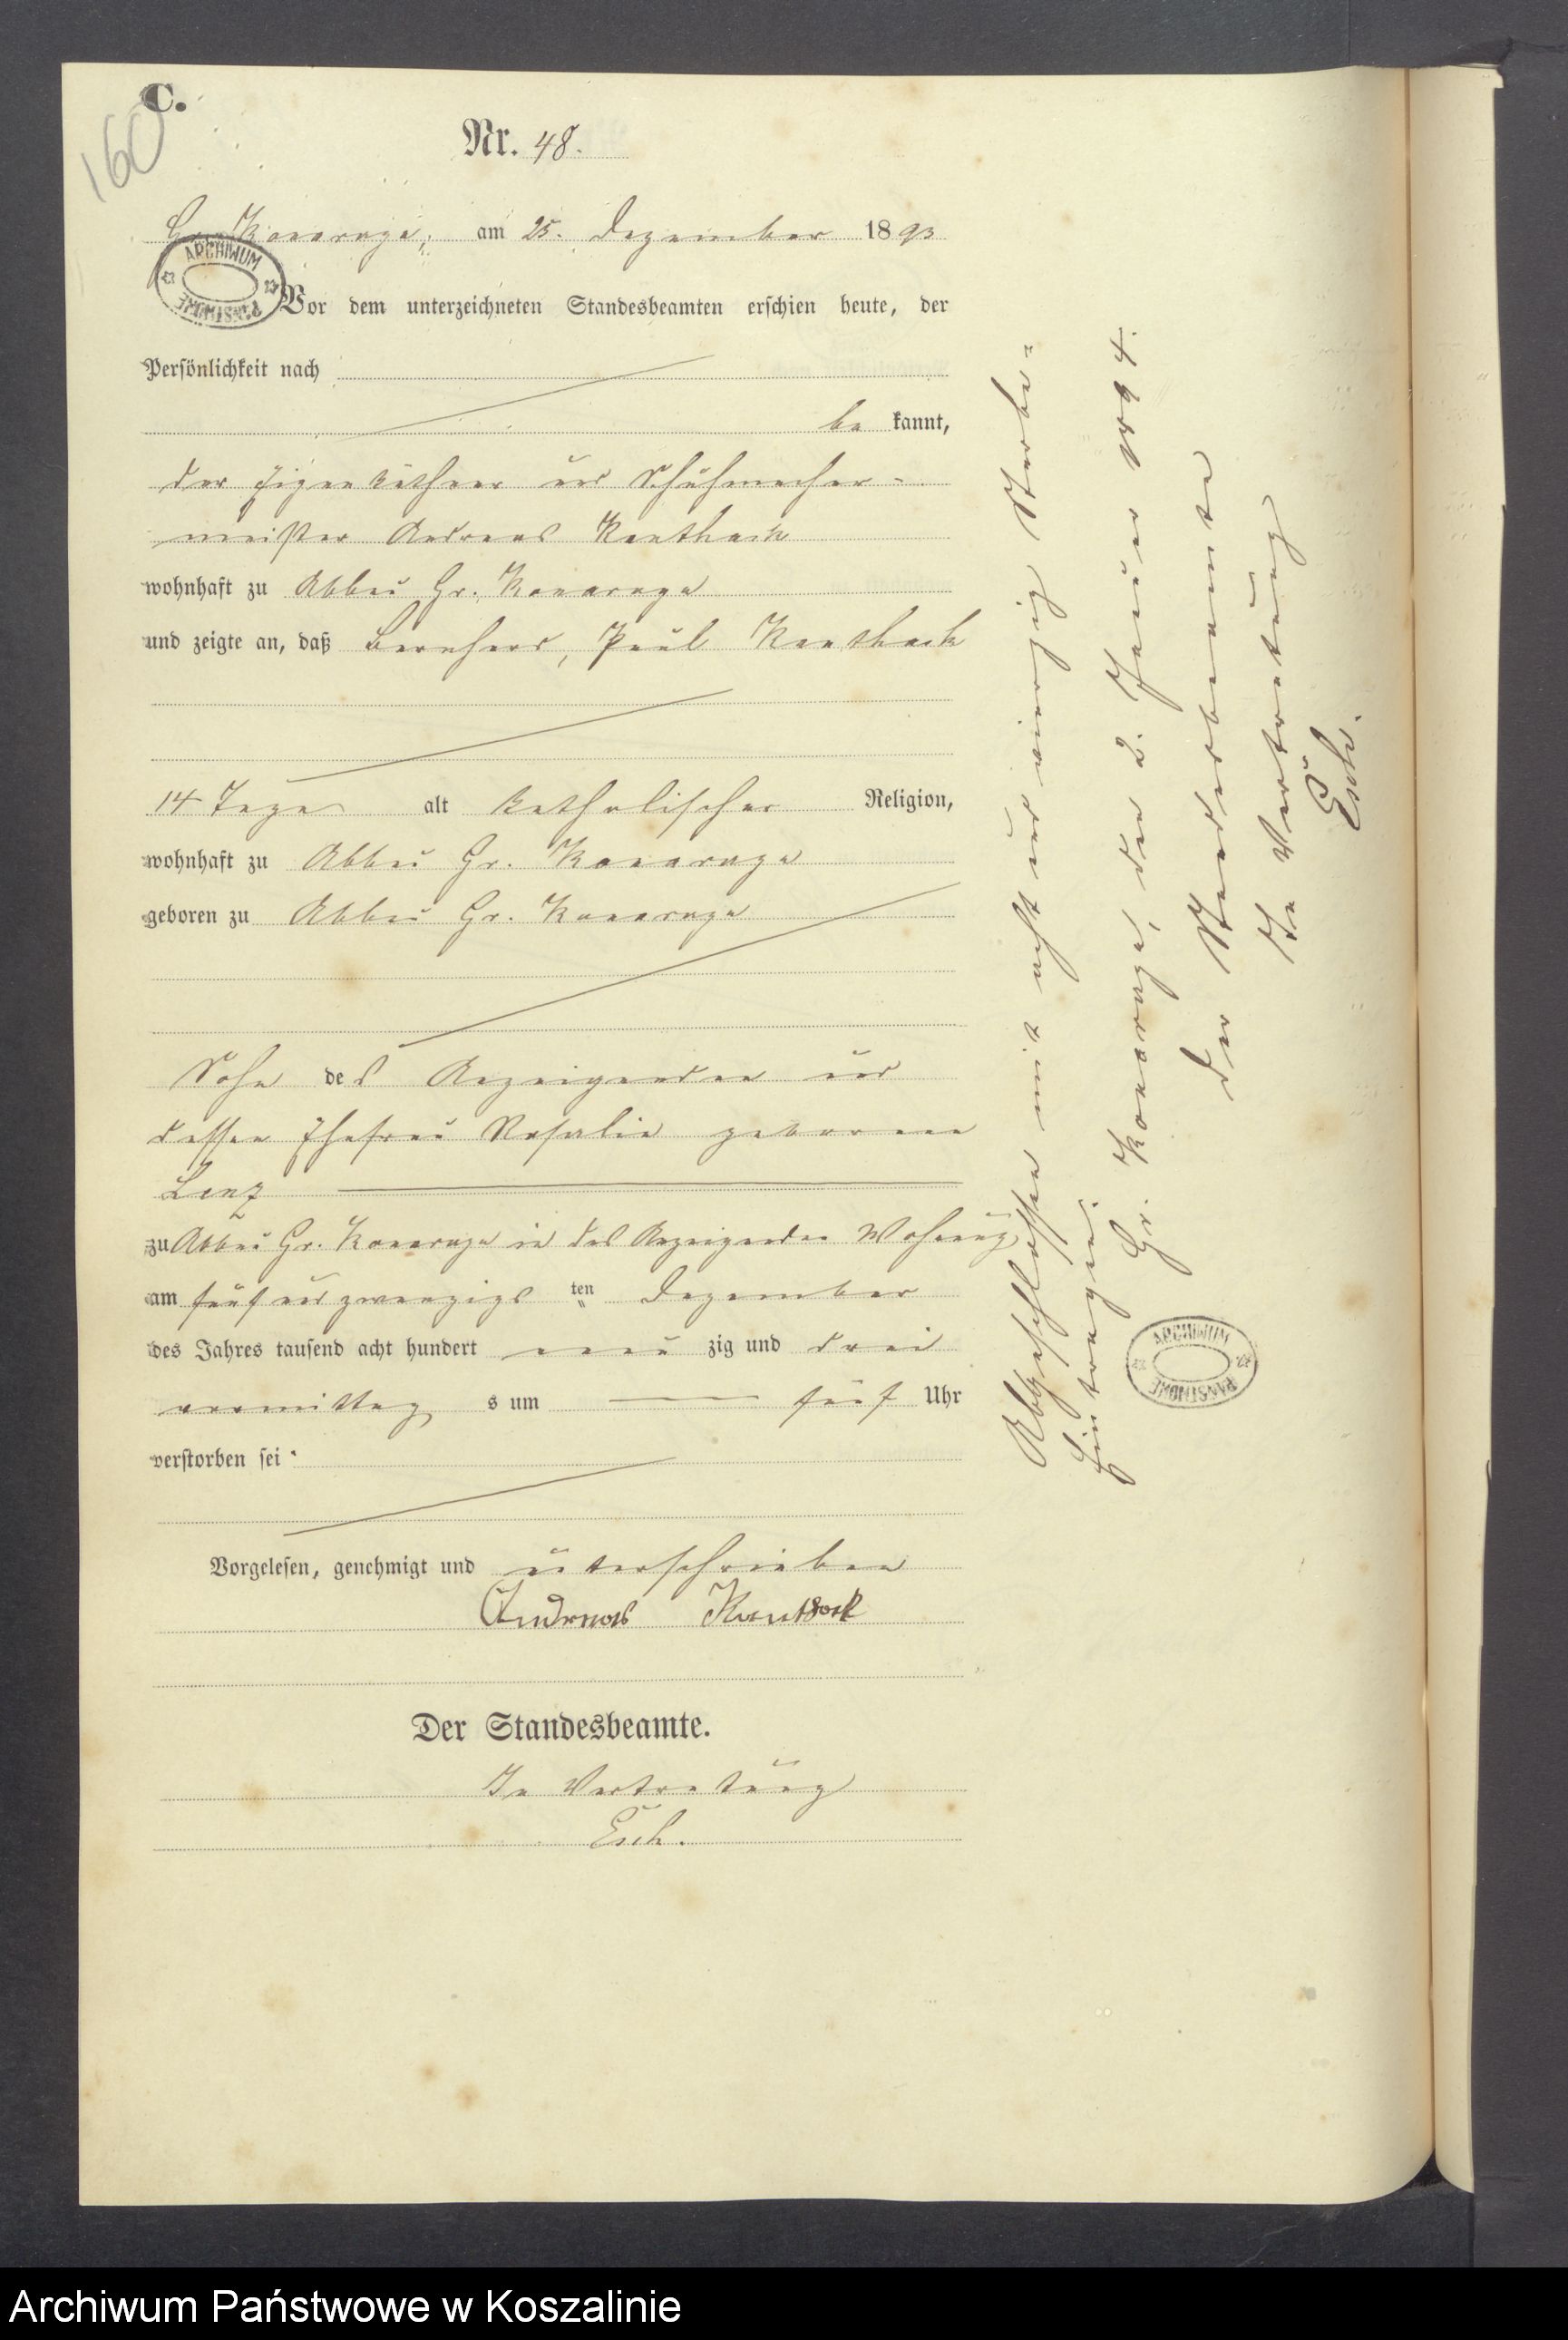 C.
160
Nr. 48.
Gr. Konarczyn, am 25. Dezember 1893
ARCHIWUM PAŃSTWOWE
Vor dem unterzeichneten Standesbeamten erschien heute, der
Persönlichkeit nach
be kannt,
der Eigenkäthner und Schuhmacher-
meister Andreas
wohnhaft zu Abbau Gr.
und zeigte an, daß Bernhard, Paul
14 Tage alt katholischer Religion,
wohnhaft zu Abbau Gr.
geboren zu Abbau Gr.
Sohn des Anzeigenden und
dessen Ehefrau Rosalie geborene
Lenz
zu Abbau Gr. in des Anzeigenden Wohnung
am fünf und zwanzigs ten Dezember
des Jahres tausend acht hundert neun zig und drei
vormittag s um fünf Uhr
verstorben sei
Vorgelesen, genehmigt und unterschrieben
Andreas
Der Standesbeamte.
In Vertretung
Esch.
Abgeschlossen mit acht und vierzig Sterbe-
Eintragungen.
Gr. den 2. Januar 1894.
Der Standesbeamte
In Vertretung
Esch.
ARCHIWUM PAŃSTWOWE
Archiwum Państwowe w Koszalinie